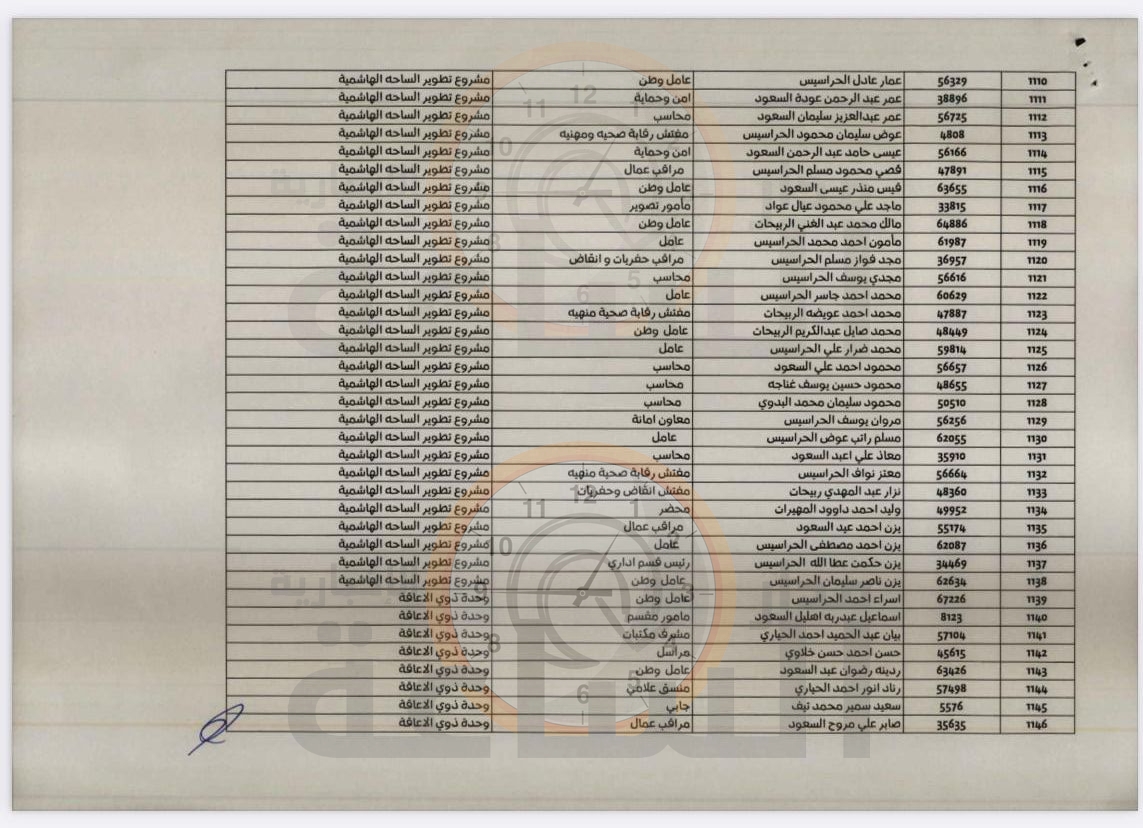 1110 56329 عمار عادل الحراسيس عامل وطن مشروع تطوير الساحه الهاشمية
1111 38896 عمر عبد الرحمن عودة السعود امن وحماية مشروع تطوير الساحه الهاشمية
1112 56725 عمر عبدالعزيز سليمان السعود محاسب مشروع تطوير الساحه الهاشمية
1113 4808 عوض سليمان محمود الحراسيس مفتش رقابة صحيه ومهنيه مشروع تطوير الساحه الهاشمية
1114 56166 عيسى حامد عبد الرحمن السعود امن وحماية مشروع تطوير الساحه الهاشمية
1115 47891 قصي محمود مسلم الحراسيس مراقب عمال مشروع تطوير الساحه الهاشمية
1116 63655 قيس منذر عيسى السعود عامل وطن مشروع تطوير الساحه الهاشمية
1117 33815 ماجد علي محمود عيال عواد مأمور تصوير مشروع تطوير الساحه الهاشمية
1118 64886 مالك محمد عبد الغني الربيحات عامل وطن مشروع تطوير الساحه الهاشمية
1119 61987 مأمون احمد محمد الحراسيس عامل مشروع تطوير الساحه الهاشمية
1120 36957 مجد فواز مسلم الحراسيس مراقب حفريات و انقاض مشروع تطوير الساحه الهاشمية
1121 56616 مجدي يوسف الحراسيس محاسب مشروع تطوير الساحه الهاشمية
1122 60629 محمد احمد جاسر الحراسيس عامل مشروع تطوير الساحه الهاشمية
1123 47887 محمد احمد عويضه الربيحات مفتش رقابة صحية منهيه مشروع تطوير الساحه الهاشمية
1124 48449 محمد صايل عبدالكريم الربيحات عامل وطن مشروع تطوير الساحه الهاشمية
1125 59814 محمد ضرار علي الحراسيس عامل مشروع تطوير الساحه الهاشمية
1126 56657 محمود احمد علي السعود محاسب مشروع تطوير الساحه الهاشمية
1127 48655 محمود حسين يوسف غناجه محاسب مشروع تطوير الساحه الهاشمية
1128 50510 محمود سليمان محمد البدوي محاسب مشروع تطوير الساحه الهاشمية
1129 56256 مروان يوسف الحراسيس معاون امانة مشروع تطوير الساحه الهاشمية
1130 62055 مسلم راتب عوض الحراسيس عامل مشروع تطوير الساحه الهاشمية
1131 35910 معاذ علي اعبد السعود محاسب مشروع تطوير الساحه الهاشمية
1132 56664 معتز نواف الحراسيس مفتش رقابة صحية منهيه مشروع تطوير الساحه الهاشمية
1133 48360 نزار عبد المهدي ربيحات مفتش انقاض وحفريات مشروع تطوير الساحه الهاشمية
1134 49952 وليد احمد داوود المهيرات محضر مشروع تطوير الساحه الهاشمية
1135 55174 يزن احمد عبد السعود مراقب عمال مشروع تطوير الساحه الهاشمية
1136 62087 يزن احمد مصطفى الحراسيس عامل مشروع تطوير الساحه الهاشمية
1137 34469 يزن حكمت عطا الله الحراسيس رئيس قسم اداري مشروع تطوير الساحه الهاشمية
1138 62634 يزن ناصر سليمان الحراسيس عامل وطن مشروع تطوير الساحه الهاشمية
1139 67226 اسراء احمد الحراسيس عامل وطن وحدة ذوي الاعاقة
1140 8123 اسماعيل عبدربه اهليل السعود مامور مقسم وحدة ذوي الاعاقة
1141 57104 بيان عبد الحميد احمد الحياري مشرف مكتبات وحدة ذوي الاعاقة
1142 45615 حسن احمد حسن خلاوي مراسل وحدة ذوي الاعاقة
1143 63426 ردينه رضوان عبد السعود عامل وطن وحدة ذوي الاعاقة
1144 57498 رناد انور احمد الحياري منسق علامي وحدة ذوي الاعاقة
1145 5576 سعيد سمير محمد نيف جابي وحدة ذوي الاعاقة
1146 35635 صابر علي مروح السعود مراقب عمال وحدة ذوي الاعاقة